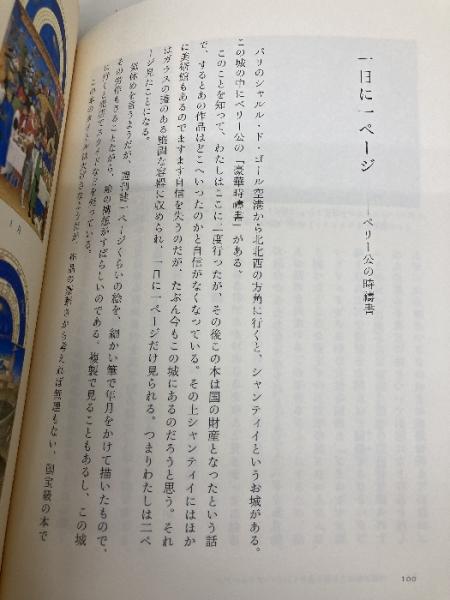 一日に一ページ ――ベリー公の時禱書
パリのシャルル・ド・ゴール空港から北北西の方角に行くと、シャンティイというお城がある。
この城の中にベリー公の「豪華時禱書」がある。
このことを知って、わたしはここに二度行ったが、その後この本は国の財産となったという話
で、するとあの作品はどこへいったのかと自信がなくなっている。その上シャンティイにはほか
に美術館もあるのでますます自信を失うのだが、たぶん今もこの城にあるのだろうと思う。それ
はガラスの蓋のある堅固な容器に収められ、一日に一ページだけ見られる。つまりわたしは二ペ
ージ見たことになる。
気休めを言うようだが、週刊誌一ページくらいの絵を、細かい筆で年月をかけて描いたもので、
その労作もさることながら、絵の構想がすばらしいのである。複製で見ることもあるし、この城
に行くと売店でスライドなどを売っている。
この本のタイトルは大げさなようだが、作品の
考えれば無理もない、国宝級の本で
1月
100